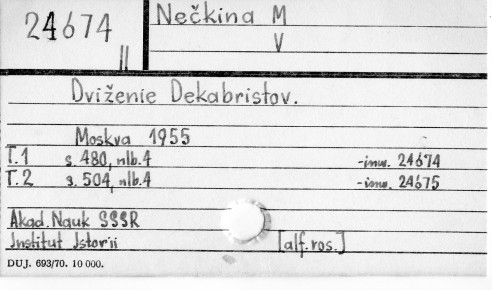 24674
II
Nečkina M
V
Dviženie Dekabristov.
Moskva 1955
T.1 s. 480, nlb. 4 -inw. 24674
T.2 s. 504, nlb. 4 -inw. 24675
Akad. Nauk SSSR
Institut Istorii [alf. ros.]
DUJ. 693/70. 10 000.